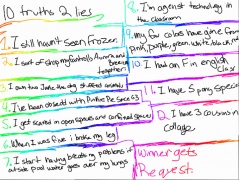 10 truths 2 lies
1. I still havn't seen Frozen.
2. I sort of ship my football's Aurora and
together!
3. I own two Jane the dog stuffed animals
4. I've been obsesed with Pinkie Pie since 4/3
5. I get scared in open spaces and confined spaces
6. When I was five i broke my leg
7. I start having breathing problems if
pool water goes over my lungs
8. I'm against technology in
the classroom
9. My fav colors have gone from
pink, purple, green, white, black,
10. I had an F in english
class
11. I have 5 pony
12. I have 3 cousins in
collage
Winner gets
Request